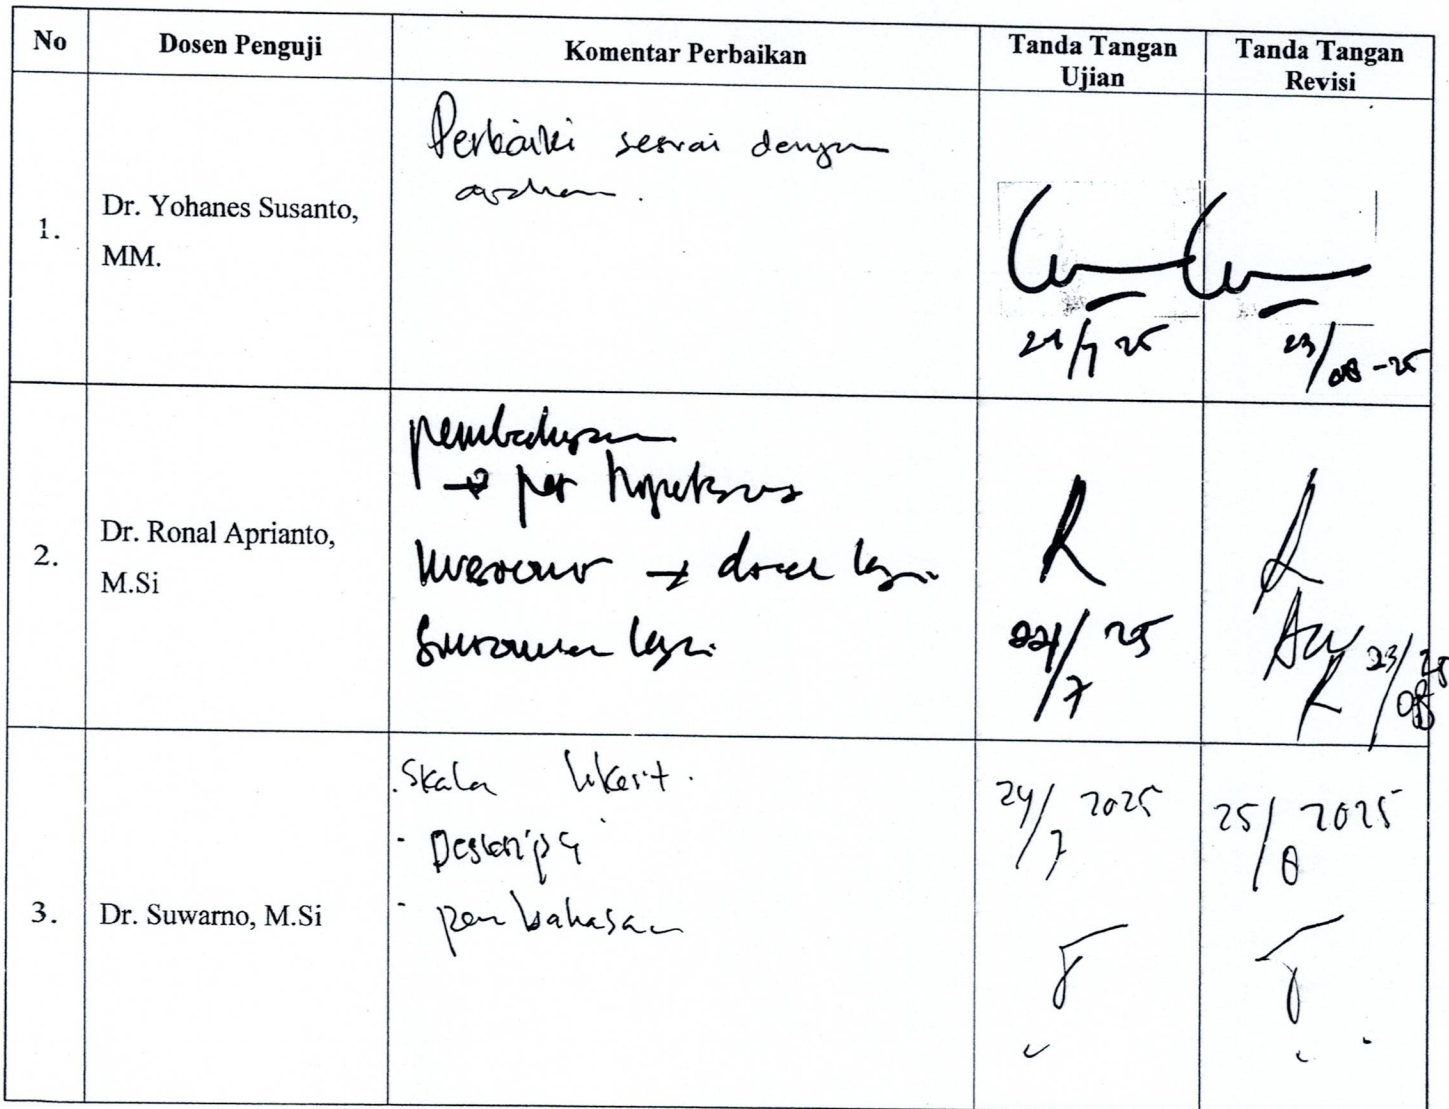 No Dosen Penguji Komentar Perbaikan Tanda Tangan Ujian Tanda Tangan Revisi
1. Dr. Yohanes Susanto, MM.
Perbaiki sesuai dengan
arahan.
23/08-25
2. Dr. Ronal Aprianto, M.Si
pembahasan
→ per hipotesis
→ lagi.
lagi.
25
/7
Acc
23/08 25
3. Dr. Suwarno, M.Si
. Skala likert.
- Deskripsi
- pembahasan
24/7 2025
25/8 2025